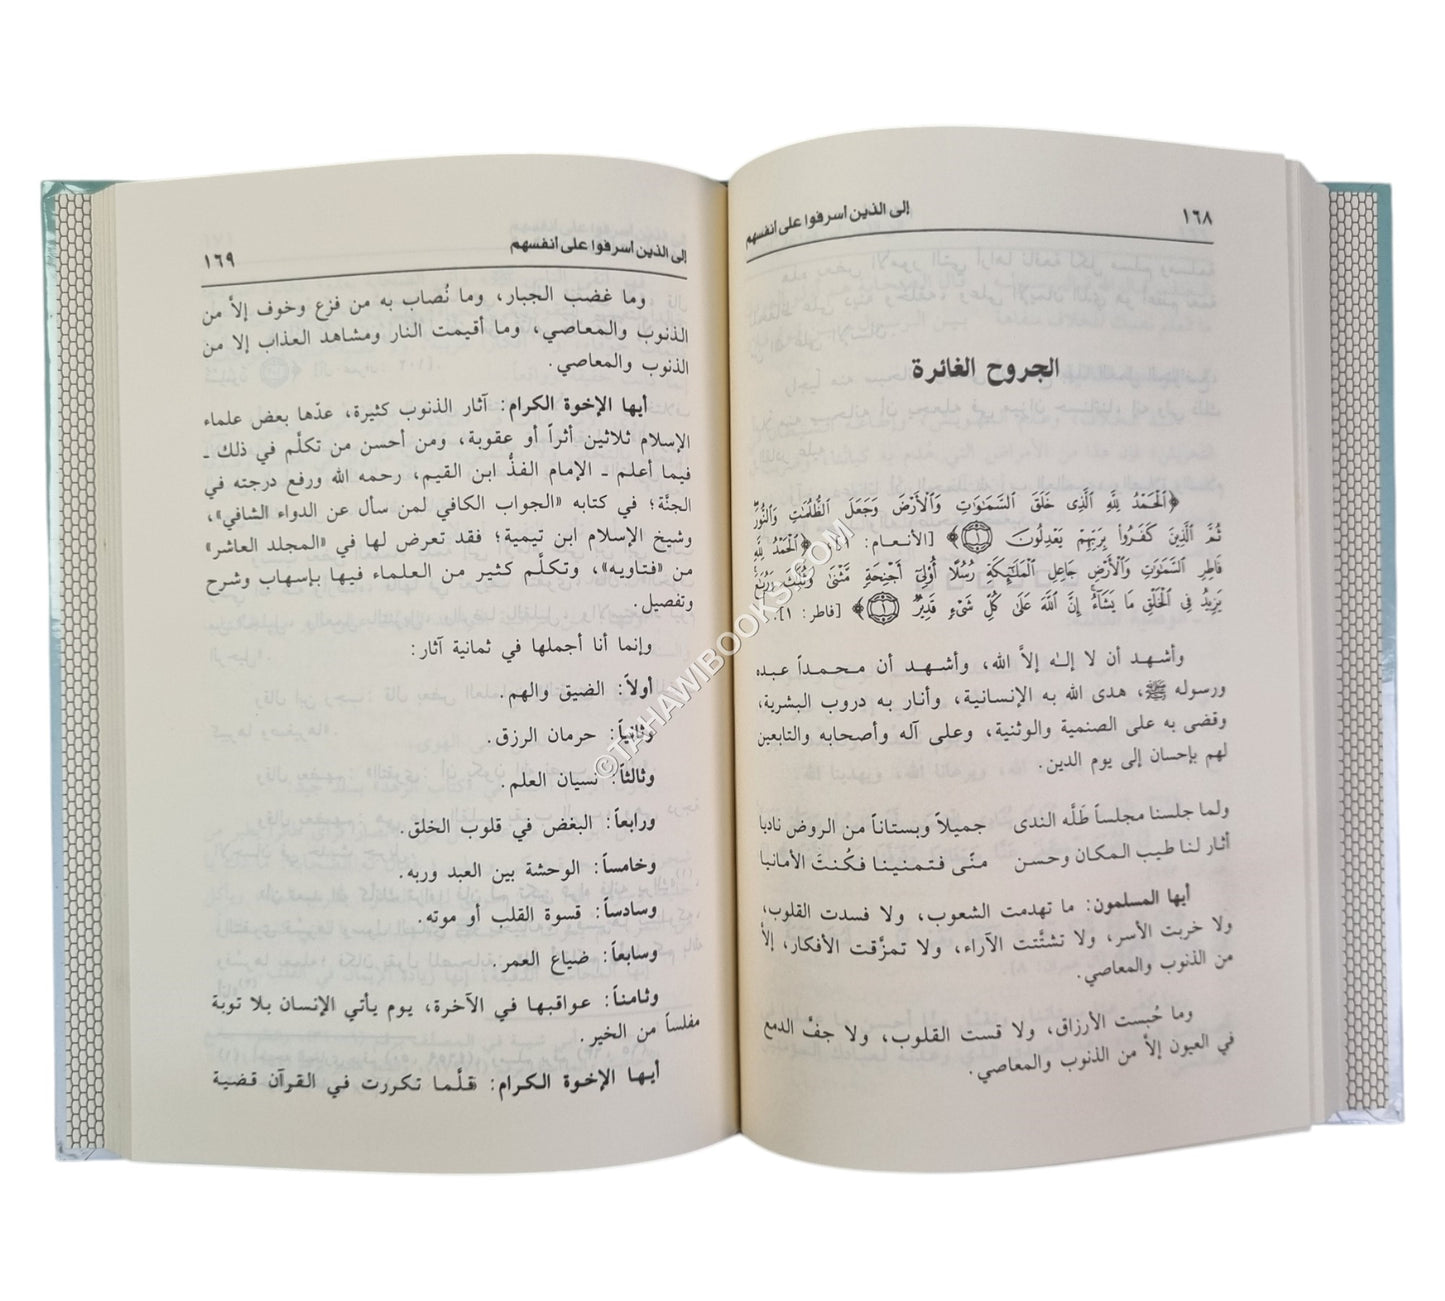 ١٦٨ إلى الذين أسرفوا على أنفسهم
الجروح الغائرة
﴿ٱلْحَمْدُ لِلَّهِ ٱلَّذِى خَلَقَ ٱلسَّمَٰوَٰتِ وَٱلْأَرْضَ وَجَعَلَ ٱلظُّلُمَٰتِ وَٱلنُّورَ
ثُمَّ ٱلَّذِينَ كَفَرُوا۟ بِرَبِّهِمْ يَعْدِلُونَ ١﴾ [الأنعام: ١]. ﴿ٱلْحَمْدُ لِلَّهِ
فَاطِرِ ٱلسَّمَٰوَٰتِ وَٱلْأَرْضِ جَاعِلِ ٱلْمَلَٰٓئِكَةِ رُسُلًا أُو۟لِىٓ أَجْنِحَةٍ مَّثْنَىٰ وَثُلَٰثَ وَرُبَٰعَ
يَزِيدُ فِى ٱلْخَلْقِ مَا يَشَآءُ إِنَّ ٱللَّهَ عَلَىٰ كُلِّ شَىْءٍ قَدِيرٌ ١﴾ [فاطر: ١].
وأشهد أن لا إله إلاَّ الله، وأشهد أن محمداً عبده
ورسوله ﷺ، هدى الله به الإنسانية، وأنار به دروب البشرية،
وقضى به على الصنمية والوثنية، وعلى آله وأصحابه والتابعين
لهم بإحسان إلى يوم الدين.
ولما جلسنا مجلساً طَلَّه الندى جميلاً وبستاناً من الروض ناديا
أثار لنا طيب المكان وحسن منًى فتمنينا فكُنتَ الأمانيا
أيها المسلمون: ما تهدمت الشعوب، ولا فسدت القلوب،
ولا خربت الأسر، ولا تشتَّتت الآراء، ولا تمزَّقت الأفكار، إلاَّ
من الذنوب والمعاصي.
وما حُبست الأرزاق، ولا قست القلوب، ولا جفَّ الدمع
في العيون إلاَّ من الذنوب والمعاصي.
إلى الذين أسرفوا على أنفسهم ١٦٩
وما غضب الجبار، وما نُصاب به من فزع وخوف إلاَّ من
الذنوب والمعاصي، وما أقيمت النار ومشاهد العذاب إلا من
الذنوب والمعاصي.
أيها الإخوة الكرام: آثار الذنوب كثيرة، عدّها بعض علماء
الإسلام ثلاثين أثراً أو عقوبة، ومن أحسن من تكلّم في ذلك ـ
فيما أعلم ـ الإمام الفذُّ ابن القيم، رحمه الله ورفع درجته في
الجنَّة؛ في كتابه «الجواب الكافي لمن سأل عن الدواء الشافي»،
وشيخ الإسلام ابن تيمية؛ فقد تعرض لها في «المجلد العاشر»
من «فتاويه»، وتكلَّم كثير من العلماء فيها بإسهاب وشرح
وتفصيل.
وإنما أنا أجملها في ثمانية آثار:
أولاً: الضيق والهم.
وثانياً: حرمان الرزق.
وثالثاً: نسيان العلم.
ورابعاً: البغض في قلوب الخلق.
وخامساً: الوحشة بين العبد وربه.
وسادساً: قسوة القلب أو موته.
وسابعاً: ضياع العمر.
وثامناً: عواقبها في الآخرة، يوم يأتي الإنسان بلا توبة
مفلساً من الخير.
أيها الإخوة الكرام: قلَّما تكررت في القرآن قضية
©TAHAWIBOOKS.COM